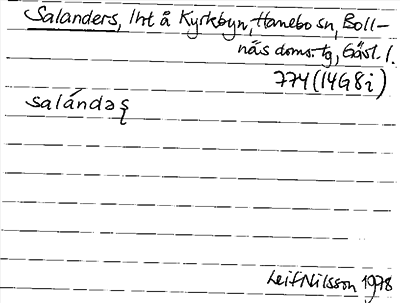 Salanders, lht å Kyrkbyn, Hanebo sn, Boll-
näs doms.tg, Gävl. l.
774 (14G8i)
salándəʂ
Leif Nilsson 1978